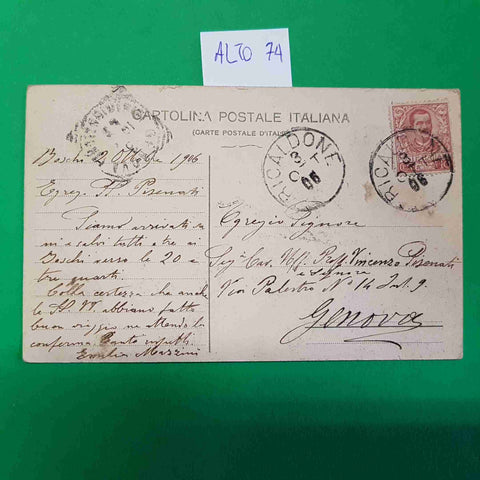 ALTO 74
CARTOLINA POSTALE ITALIANA
(CARTE POSTALE D'ITALIE)
RICALDONE
3 OT
06
RICALDONE
3 OT
06
Boschi 2 Ottobre 1906
Egreg. Pisenati
Siamo arrivati sa
ni e salvi tutti e tre ai
Boschi verso le 20 e
tre quarti.
Colla certezza che anche
le SS. VV. abbiano fatto
buon viaggio ne attendo la
conferma. Tanto
Emilia Mazzini
Egregio Signore
Sig. Cav. Uff. Prof. Vincenzo Pisenati
e Signora
Via Palestro N° 14 Int. 9.
Genova